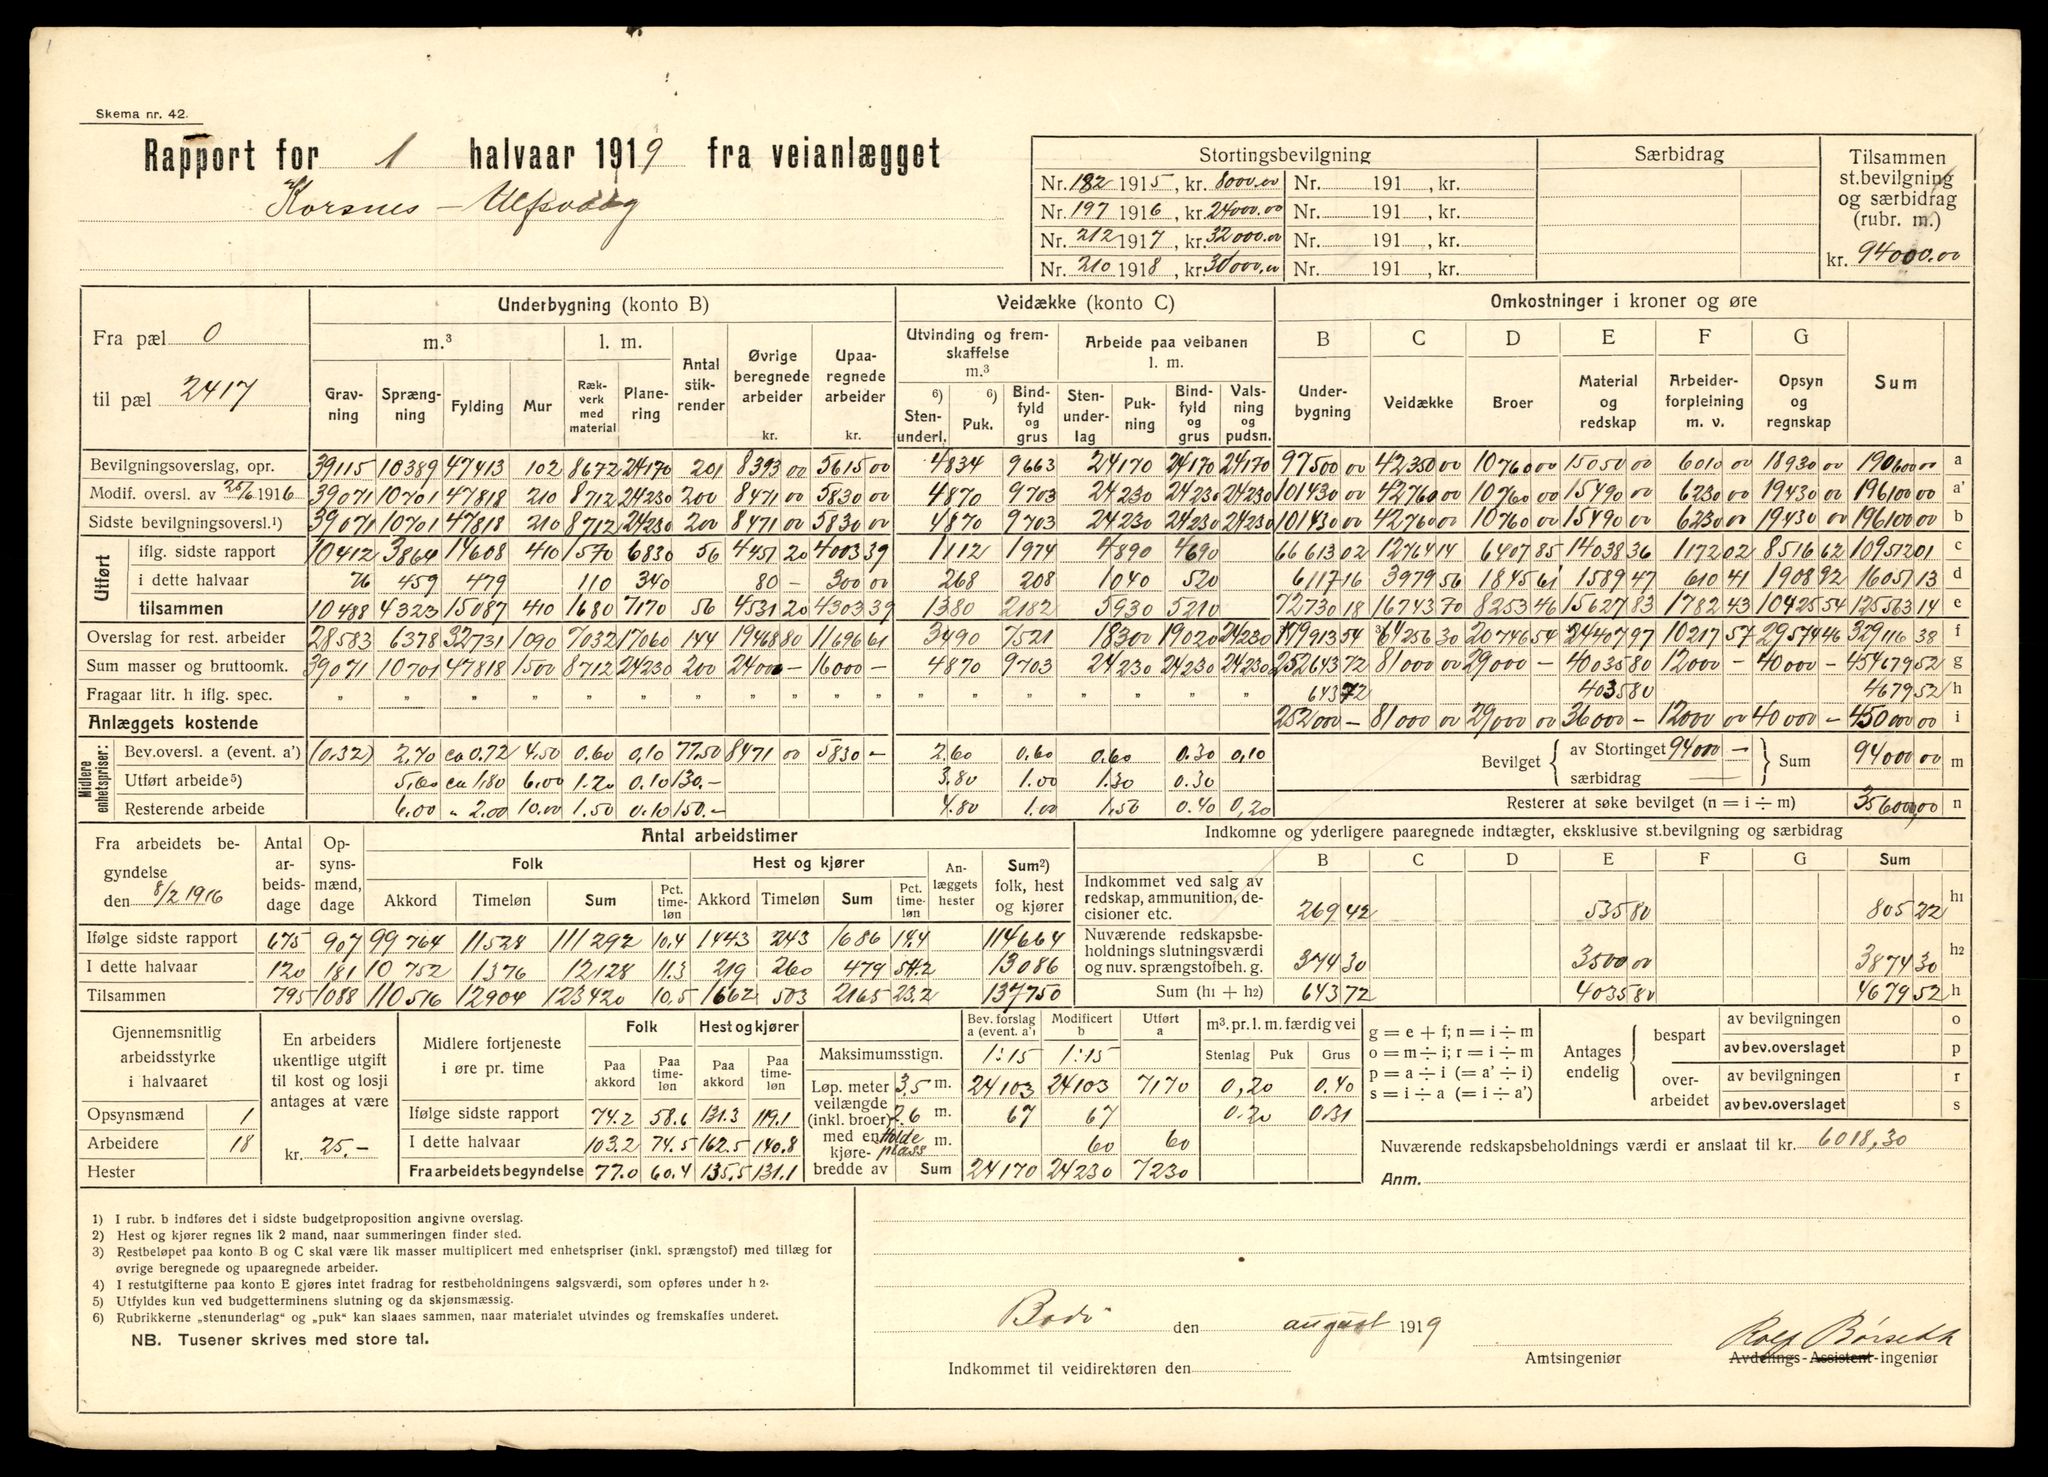 Skema nr. 42.
Rapport for 1 halvaar 1919 fra veianlægget
Korsnes – Ulfsvaag
Stortingsbevilgning | Særbidrag | Tilsammen st.bevilgning og særbidrag (rubr. m.)
Nr. 182 1915, kr. 8000.00 Nr. 191 , kr.
Nr. 197 1916, kr. 24000.00 Nr. 191 , kr.
Nr. 212 1917, kr. 32000.00 Nr. 191 , kr.
Nr. 210 1918, kr. 30000.00 Nr. 191 , kr.
kr. 94000.00
Fra pæl 0
til pæl 2417
Underbygning (konto B) | Veidække (konto C) | Omkostninger i kroner og øre
m.³ | l. m. | Antal stikrender | Øvrige beregnede arbeider kr. | Upaaregnede arbeider kr. | Utvinding og fremskaffelse m.³ | Arbeide paa veibanen l. m. | B | C | D | E | F | G | Sum
Gravning | Sprængning | Fylding | Mur | Rækverk med material | Planering | 6) Stenunderl. | 6) Puk. | Bindfyld og grus | Stenunderlag | Pukning | Bindfyld og grus | Valsning og pudsn. | Underbygning | Veidække | Broer | Material og redskap | Arbeiderforpleining m. v. | Opsyn og regnskap
Bevilgningsoverslag, opr. 39115 10389 47413 102 8672 24170 201 8393 00 5615 00 4834 9663 24170 24170 24170 97500 00 42350 00 10760 00 15050 00 6010 00 18930 00 190600 00 a
Modif. oversl. av 25/6 1916 39071 10701 47818 210 8712 24230 200 8471 00 5830 00 4870 9703 24230 24230 24230 101430 00 42760 00 10760 00 15490 00 6230 00 19430 00 196100 00 a'
Sidste bevilgningsoversl.¹) 39071 10701 47818 210 8712 24230 200 8471 00 5830 00 4870 9703 24230 24230 24230 101430 00 42760 00 10760 00 15490 00 6230 00 19430 00 196100 00 b
Utført
iflg. sidste rapport 10412 3864 14608 410 1570 6830 56 4451 20 4003 39 1112 1974 4890 4690 66613 02 12764 14 6407 85 14038 36 1172 02 8516 62 109512 01 c
i dette halvaar 76 459 479 110 340 80 – 300 00 268 208 1040 520 6117 16 3979 56 1845 61 1589 47 610 41 1908 92 16051 13 d
tilsammen 10488 4323 15087 410 1680 7170 56 4531 20 4303 39 1380 2182 5930 5210 72730 18 16743 70 8253 46 15627 83 1782 43 10425 54 125563 14 e
Overslag for rest. arbeider 28583 6378 32731 1090 7032 17060 144 19468 80 11696 61 3490 7521 18300 19020 24230 179913 54 64256 30 20746 54 24407 97 10217 57 29574 46 329116 38 f
Sum masser og bruttoomk. 39071 10701 47818 1500 8712 24230 200 24000 – 16000 – 4870 9703 24230 24230 24230 252643 72 81000 00 29000 – 40035 80 12000 – 40000 – 454679 52 g
Fragaar litr. h iflg. spec. " " " " " " " " " " " " " " 643 72 4035 80 4679 52 h
Anlæggets kostende 252000 – 81000 00 29000 00 36000 – 12000 00 40000 – 450000 00 i
Midlere enhetspriser:
Bev.oversl. a (event. a') (0.32) 2.70 ca 0.72 4.50 0.60 0.10 77.50 8471 00 5830 – 2.60 0.60 0.60 0.30 0,10
Utført arbeide⁵) 5.60 ca 1,80 6.00 1.20 0.10 130.– 3.80 1.00 1.30 0.30
Resterende arbeide 6.00 " 2.00 10.00 1.50 0.10 150.– 4.80 1.00 1.50 0.40 0,20
Bevilget { av Stortinget 94000 – særbidrag — } Sum 94000 00 m
Resterer at søke bevilget (n = i ÷ m) 356000,00 n
Fra arbeidets begyndelse den 8/2 1916
Antal arbeidsdage | Opsynsmænd, dage | Antal arbeidstimer
Folk | Hest og kjører | Anlæggets hester | Sum²) folk, hest og kjører
Akkord | Timeløn | Sum | Pct. timeløn | Akkord | Timeløn | Sum | Pct. timeløn
Ifølge sidste rapport 675 907 99764 11528 111292 10.4 1443 243 1686 14.4 114664
I dette halvaar 120 181 10752 1376 12128 11.3 219 260 479 54.2 13086
Tilsammen 795 1088 110516 12904 123420 10,5 1662 503 2165 23.2 137750
Indkomne og yderligere paaregnede indtægter, eksklusive st.bevilgning og særbidrag
B | C | D | E | F | G | Sum
Indkommet ved salg av redskap, ammunition, decisioner etc. 269 42 535 80 805 22 h1
Nuværende redskapsbeholdnings slutningsværdi og nuv. sprængstofbeh. g. 374 30 3500 00 3874 30 h2
Sum (h1 + h2) 643 72 4035 80 4679 52 h
Gjennemsnitlig arbeidsstyrke i halvaaret
Opsynsmænd 1
Arbeidere 18
Hester
En arbeiders ukentlige utgift til kost og losji antages at være
kr. 25.–
Midlere fortjeneste i øre pr. time | Folk | Hest og kjører
Paa akkord | Paa timeløn | Paa akkord | Paa timeløn
Ifølge sidste rapport 74.2 58.6 131.3 119.1
I dette halvaar 103.2 74.5 162.5 140.8
Fra arbeidets begyndelse 77.0 60.4 135.5 131.1
Bev. forslag a (event. a') | Modificert b | Utført a | m³. pr. l. m. færdig vei
Stenlag | Puk | Grus
Maksimumsstign. 1:15 1:15
Løp. meter veilængde (inkl. broer) med en kjørebredde av
3.5 m. 24103 24103 7170 0,20 0.40
2.6 m. 67 67 0.20 0.31
Møteplass m. 60 60
Sum 24170 24230 7230
g = e + f; n = i ÷ m
o = m ÷ i; r = i ÷ m
p = a ÷ i (= a' ÷ i)
s = i ÷ a (= i ÷ a')
Antages endelig { bespart { av bevilgningen o
av bev.overslaget p
overarbeidet { av bevilgningen r
av bev.overslaget s
Nuværende redskapsbeholdnings værdi er anslaat til kr. 6018,30
Anm.
1) I rubr. b indføres det i sidste budgetproposition angivne overslag.
2) Hest og kjører regnes lik 2 mand, naar summeringen finder sted.
3) Restbeløpet paa konto B og C skal være lik masser multiplicert med enhetspriser (inkl. sprængstof) med tillæg for
øvrige beregnede og upaaregnede arbeider.
4) I restutgifterne paa konto E gjøres intet fradrag for restbeholdningens salgsværdi, som opføres under h 2.
5) Utfyldes kun ved budgetterminens slutning og da skjønsmæssig.
6) Rubrikkerne „stenunderlag“ og „puk“ kan slaaes sammen, naar materialet utvindes og fremskaffes underet.
NB. Tusener skrives med store tal.
Bodø den august 1919
Rolf Børseth
Amtsingeniør
Avdelings-Assistent-ingeniør
Indkommet til veidirektøren den